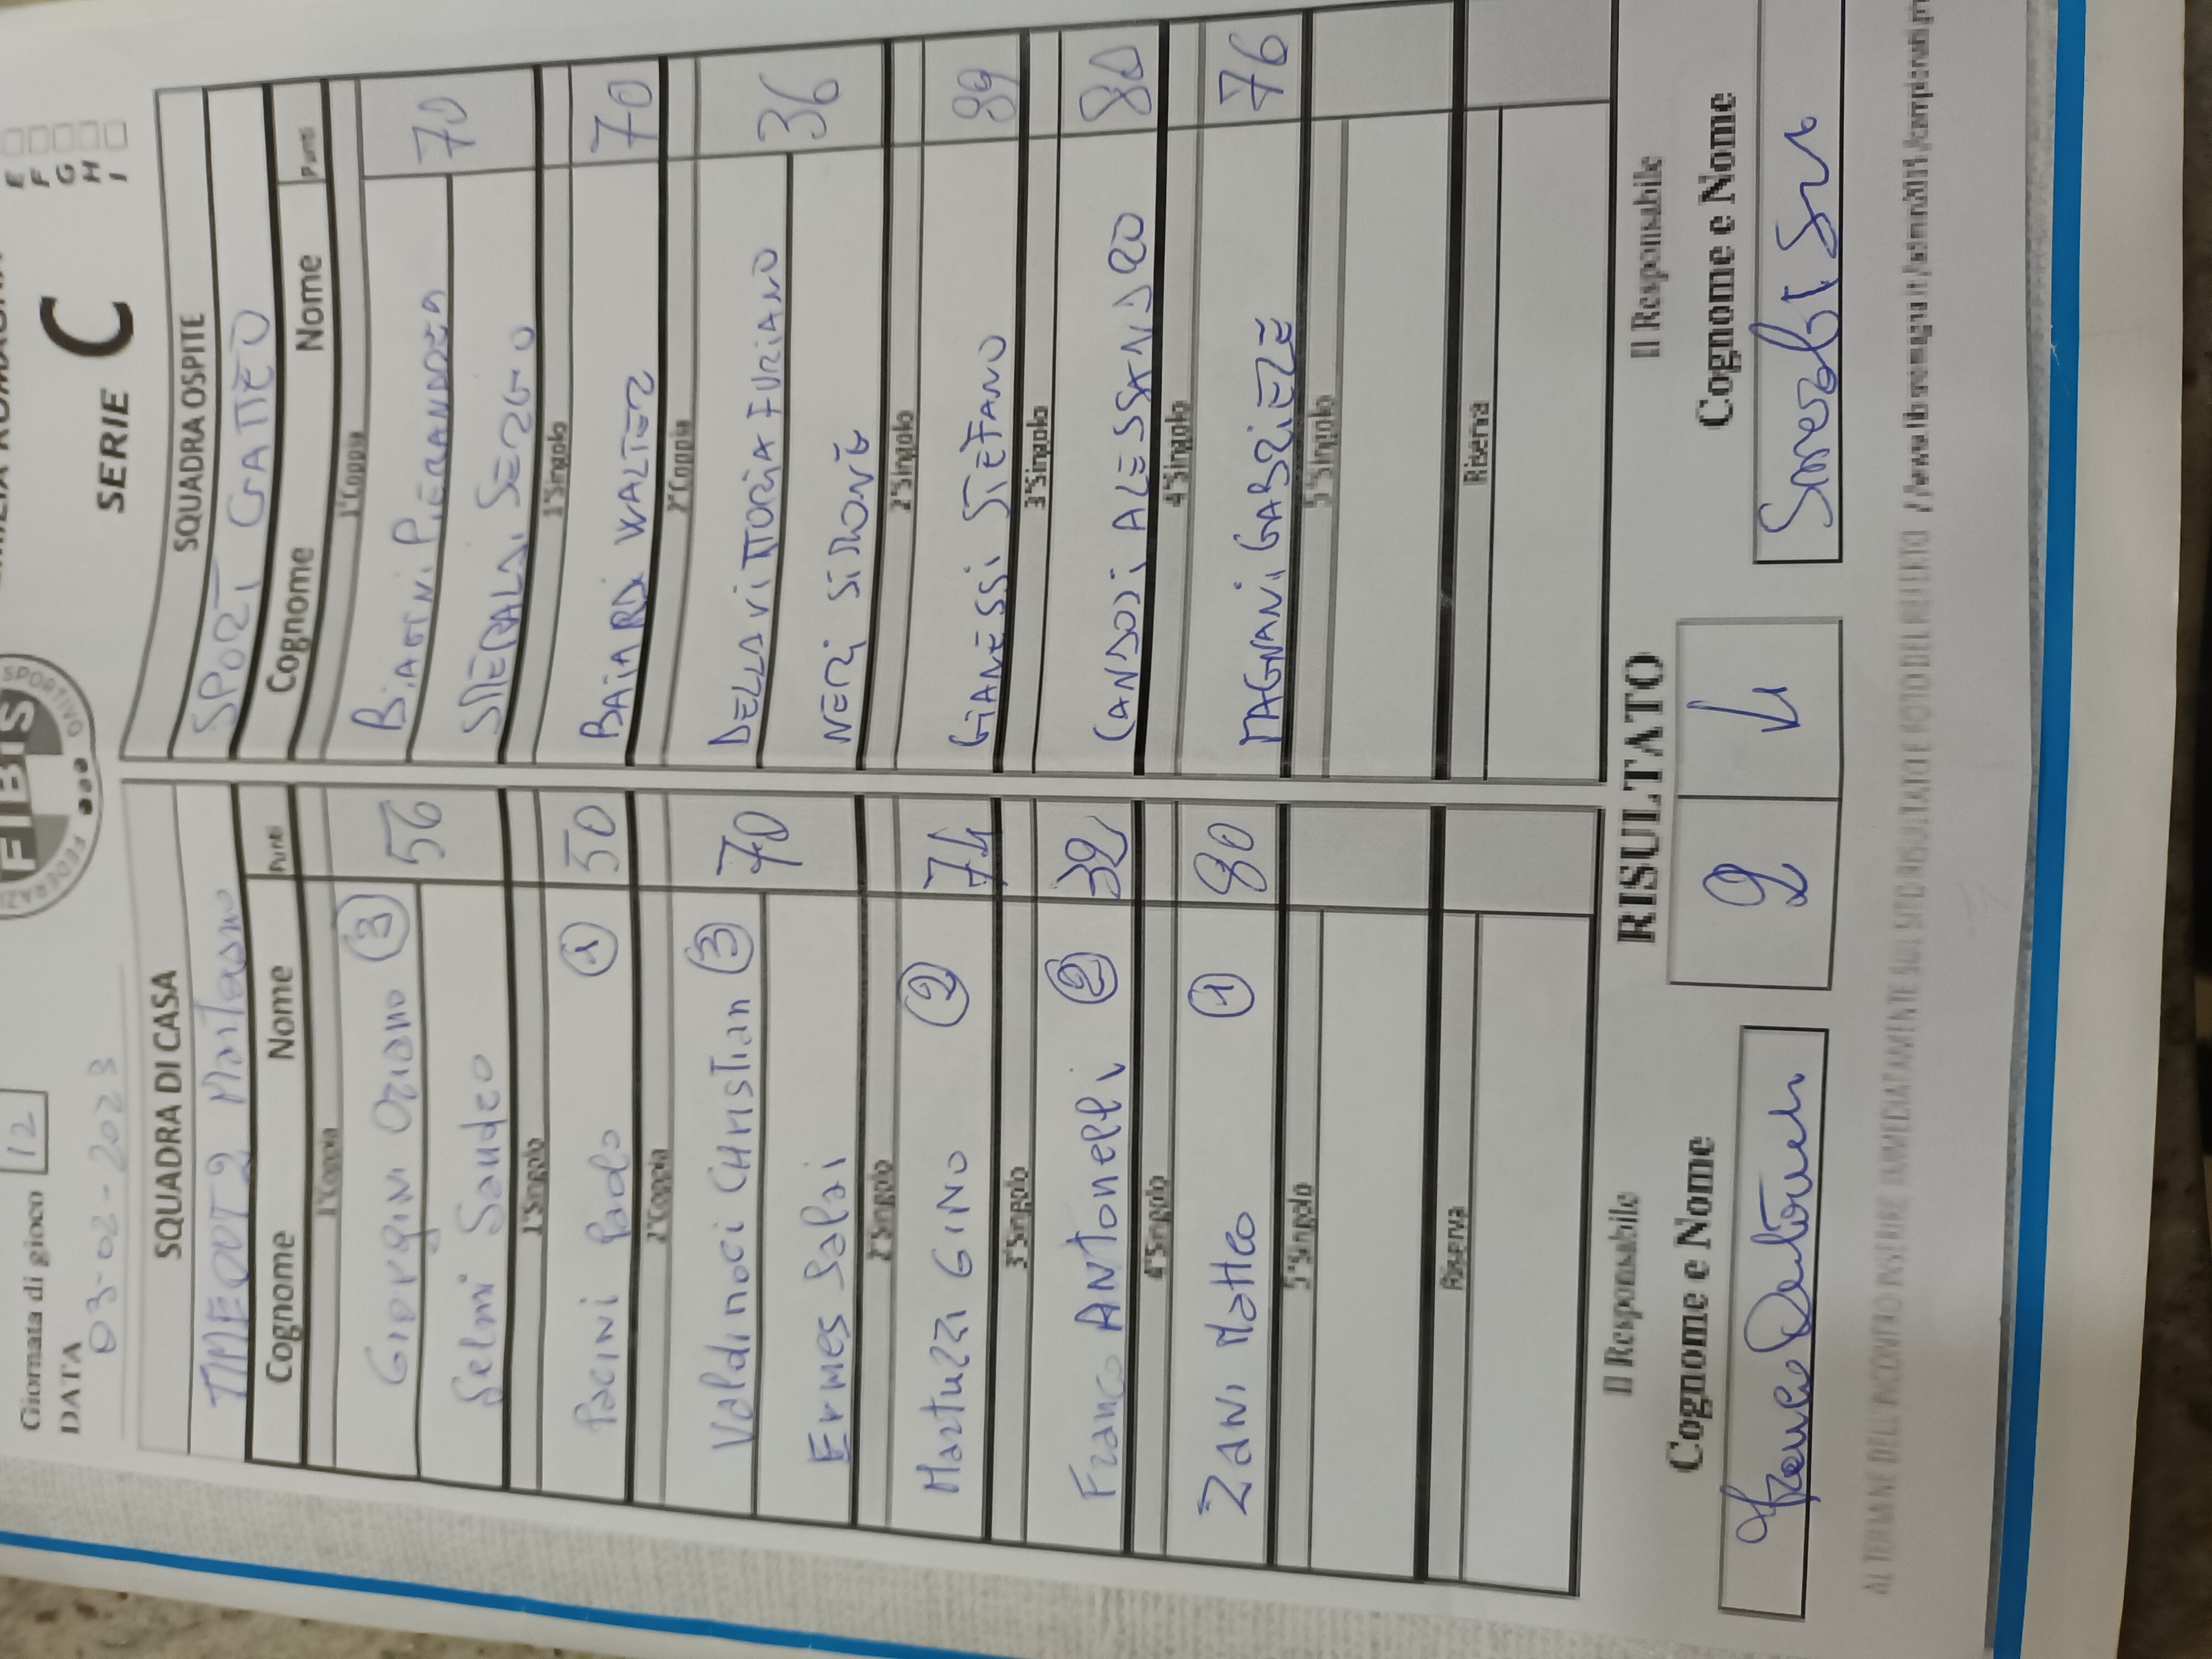 Giornata di gioco 12
DATA
03-02-2023
SERIE C
E
F
G
H
I
FIBIS
SPORTIVO
FEDERAZI
SQUADRA DI CASA
SQUADRA OSPITE
SPORT GATTEO
Cognome Nome Punti
Cognome Nome Punti
1°Coppia
1°Coppia
Giorgini Oriano 3 56
Biagini Pierandrea 70
Selmi Sandro
Sergio
1°Singolo
1°Singolo
Pacini Paolo 1 50
Baiardi Walter 70
2°Coppia
2°Coppia
Valdinoci CHristian 3 70
Della Vittoria Furiano 36
Ermes Salai
Neri Simone
2°Singolo
2°Singolo
Martuzzi Gino 2 74
Gianessi Stefano
3°Singolo
3°Singolo
Franco ANTonelli 2 32
Candoli Alessandro 80
4°Singolo
4°Singolo
Zani Matteo 1 80
Magnani Gabriele 76
5°Singolo
5°Singolo
Riserva
Riserva
RISULTATO
Il Responsabile
Il Responsabile
Cognome e Nome
Cognome e Nome
2 4
AL TERMINE DELL'INCONTRO INSERIRE IMMEDIATAMENTE SUL SITO RISULTATO E FOTO DEL REFERTO